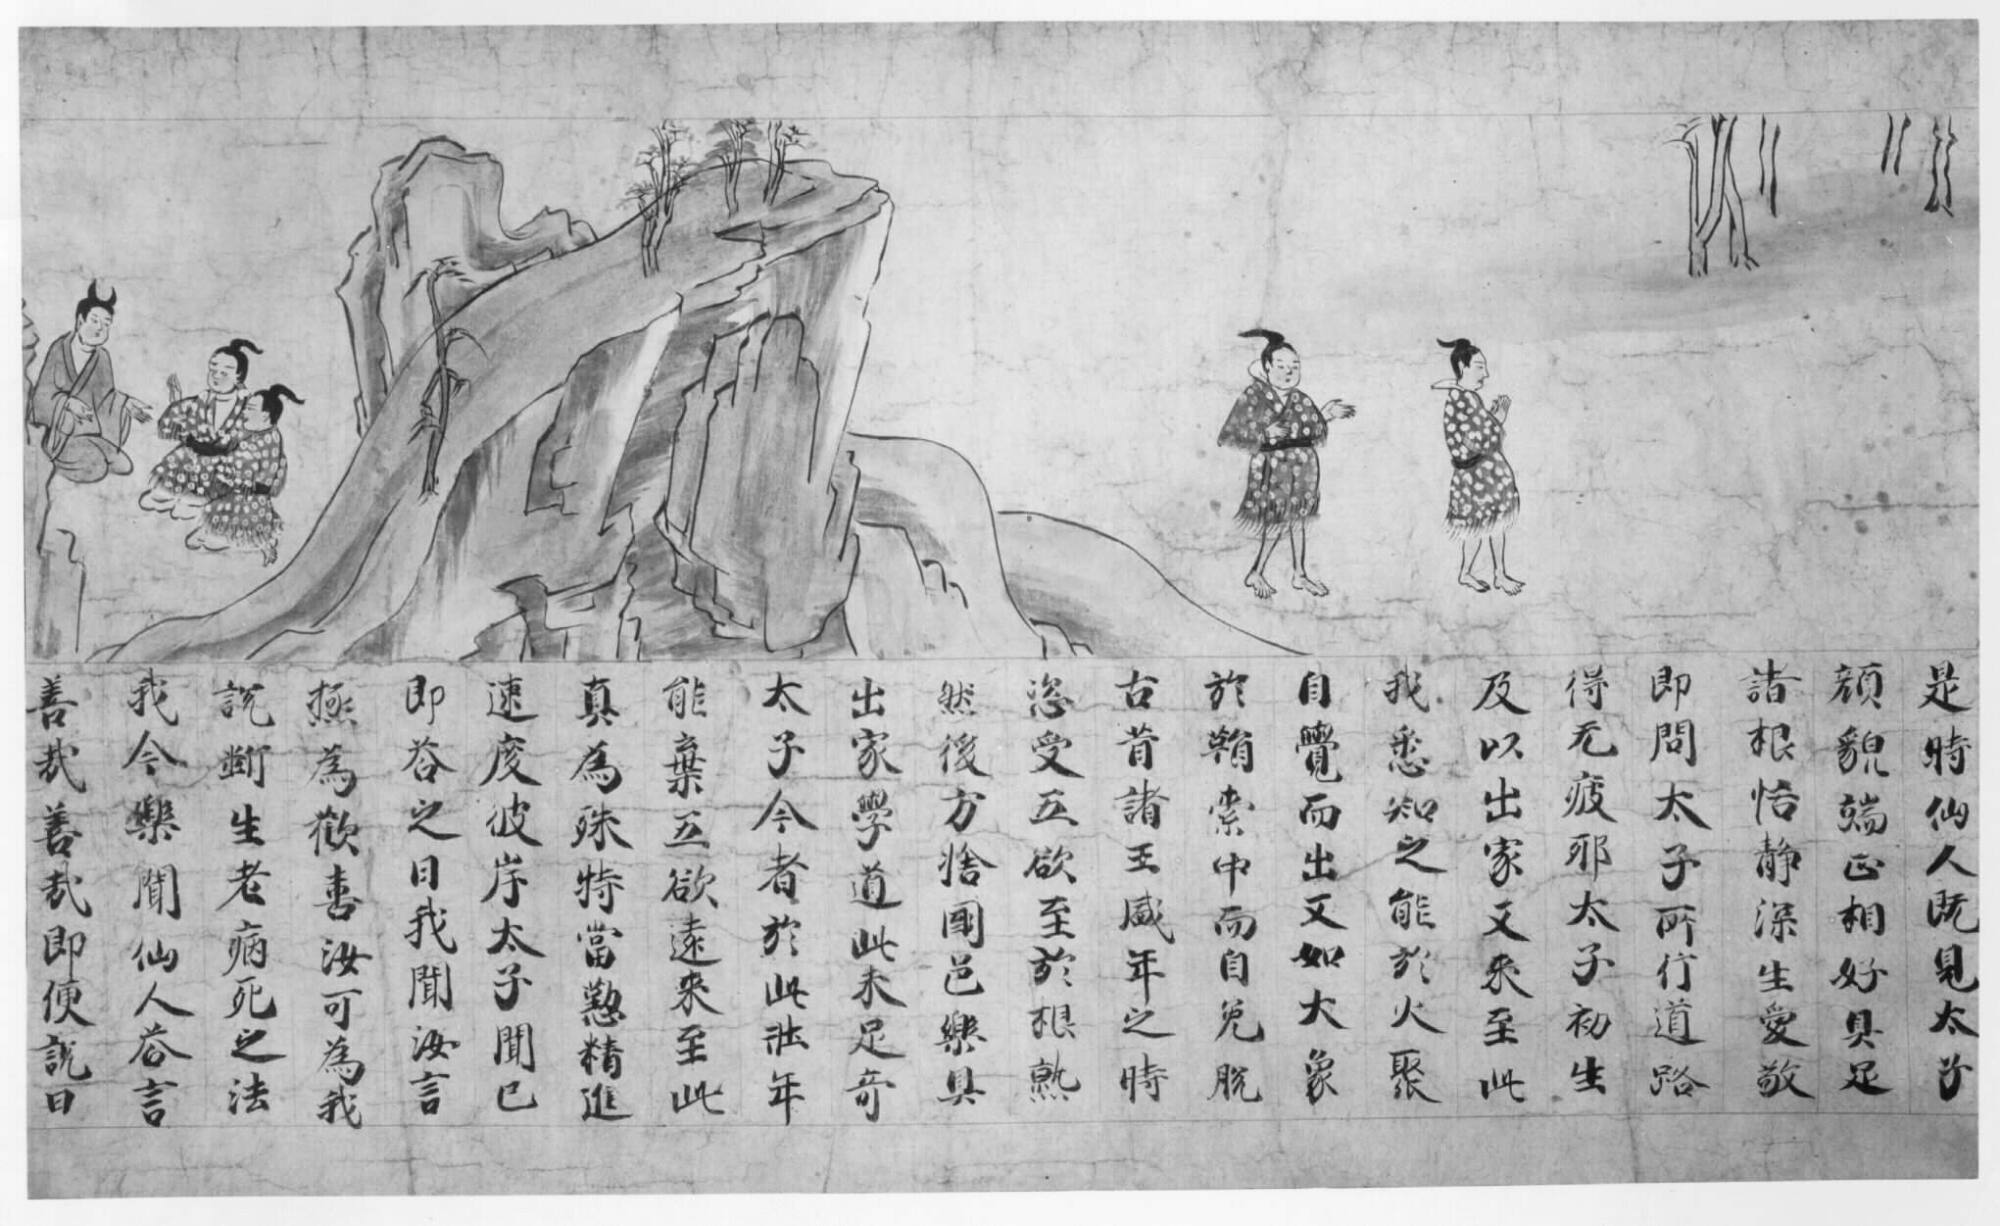 是時仙人既見太子
顔貌端正相好具足
諸根恬静深生愛敬
即問太子所行道路
得无疲耶太子初生
及以出家又来至此
我悉知之能於火聚
自覺而出又如大象
於羂索中而自免脱
古昔諸王盛年之時
恣受五欲至於根熟
然後方捨國邑樂具
出家學道此未足奇
太子今者於此壮年
能棄五欲遠来至此
真為殊特當懃精進
速度彼岸太子聞已
即答之曰我聞汝言
極為歡喜汝可為我
説断生老病死之法
我今樂聞仙人答言
善哉善哉即便説曰